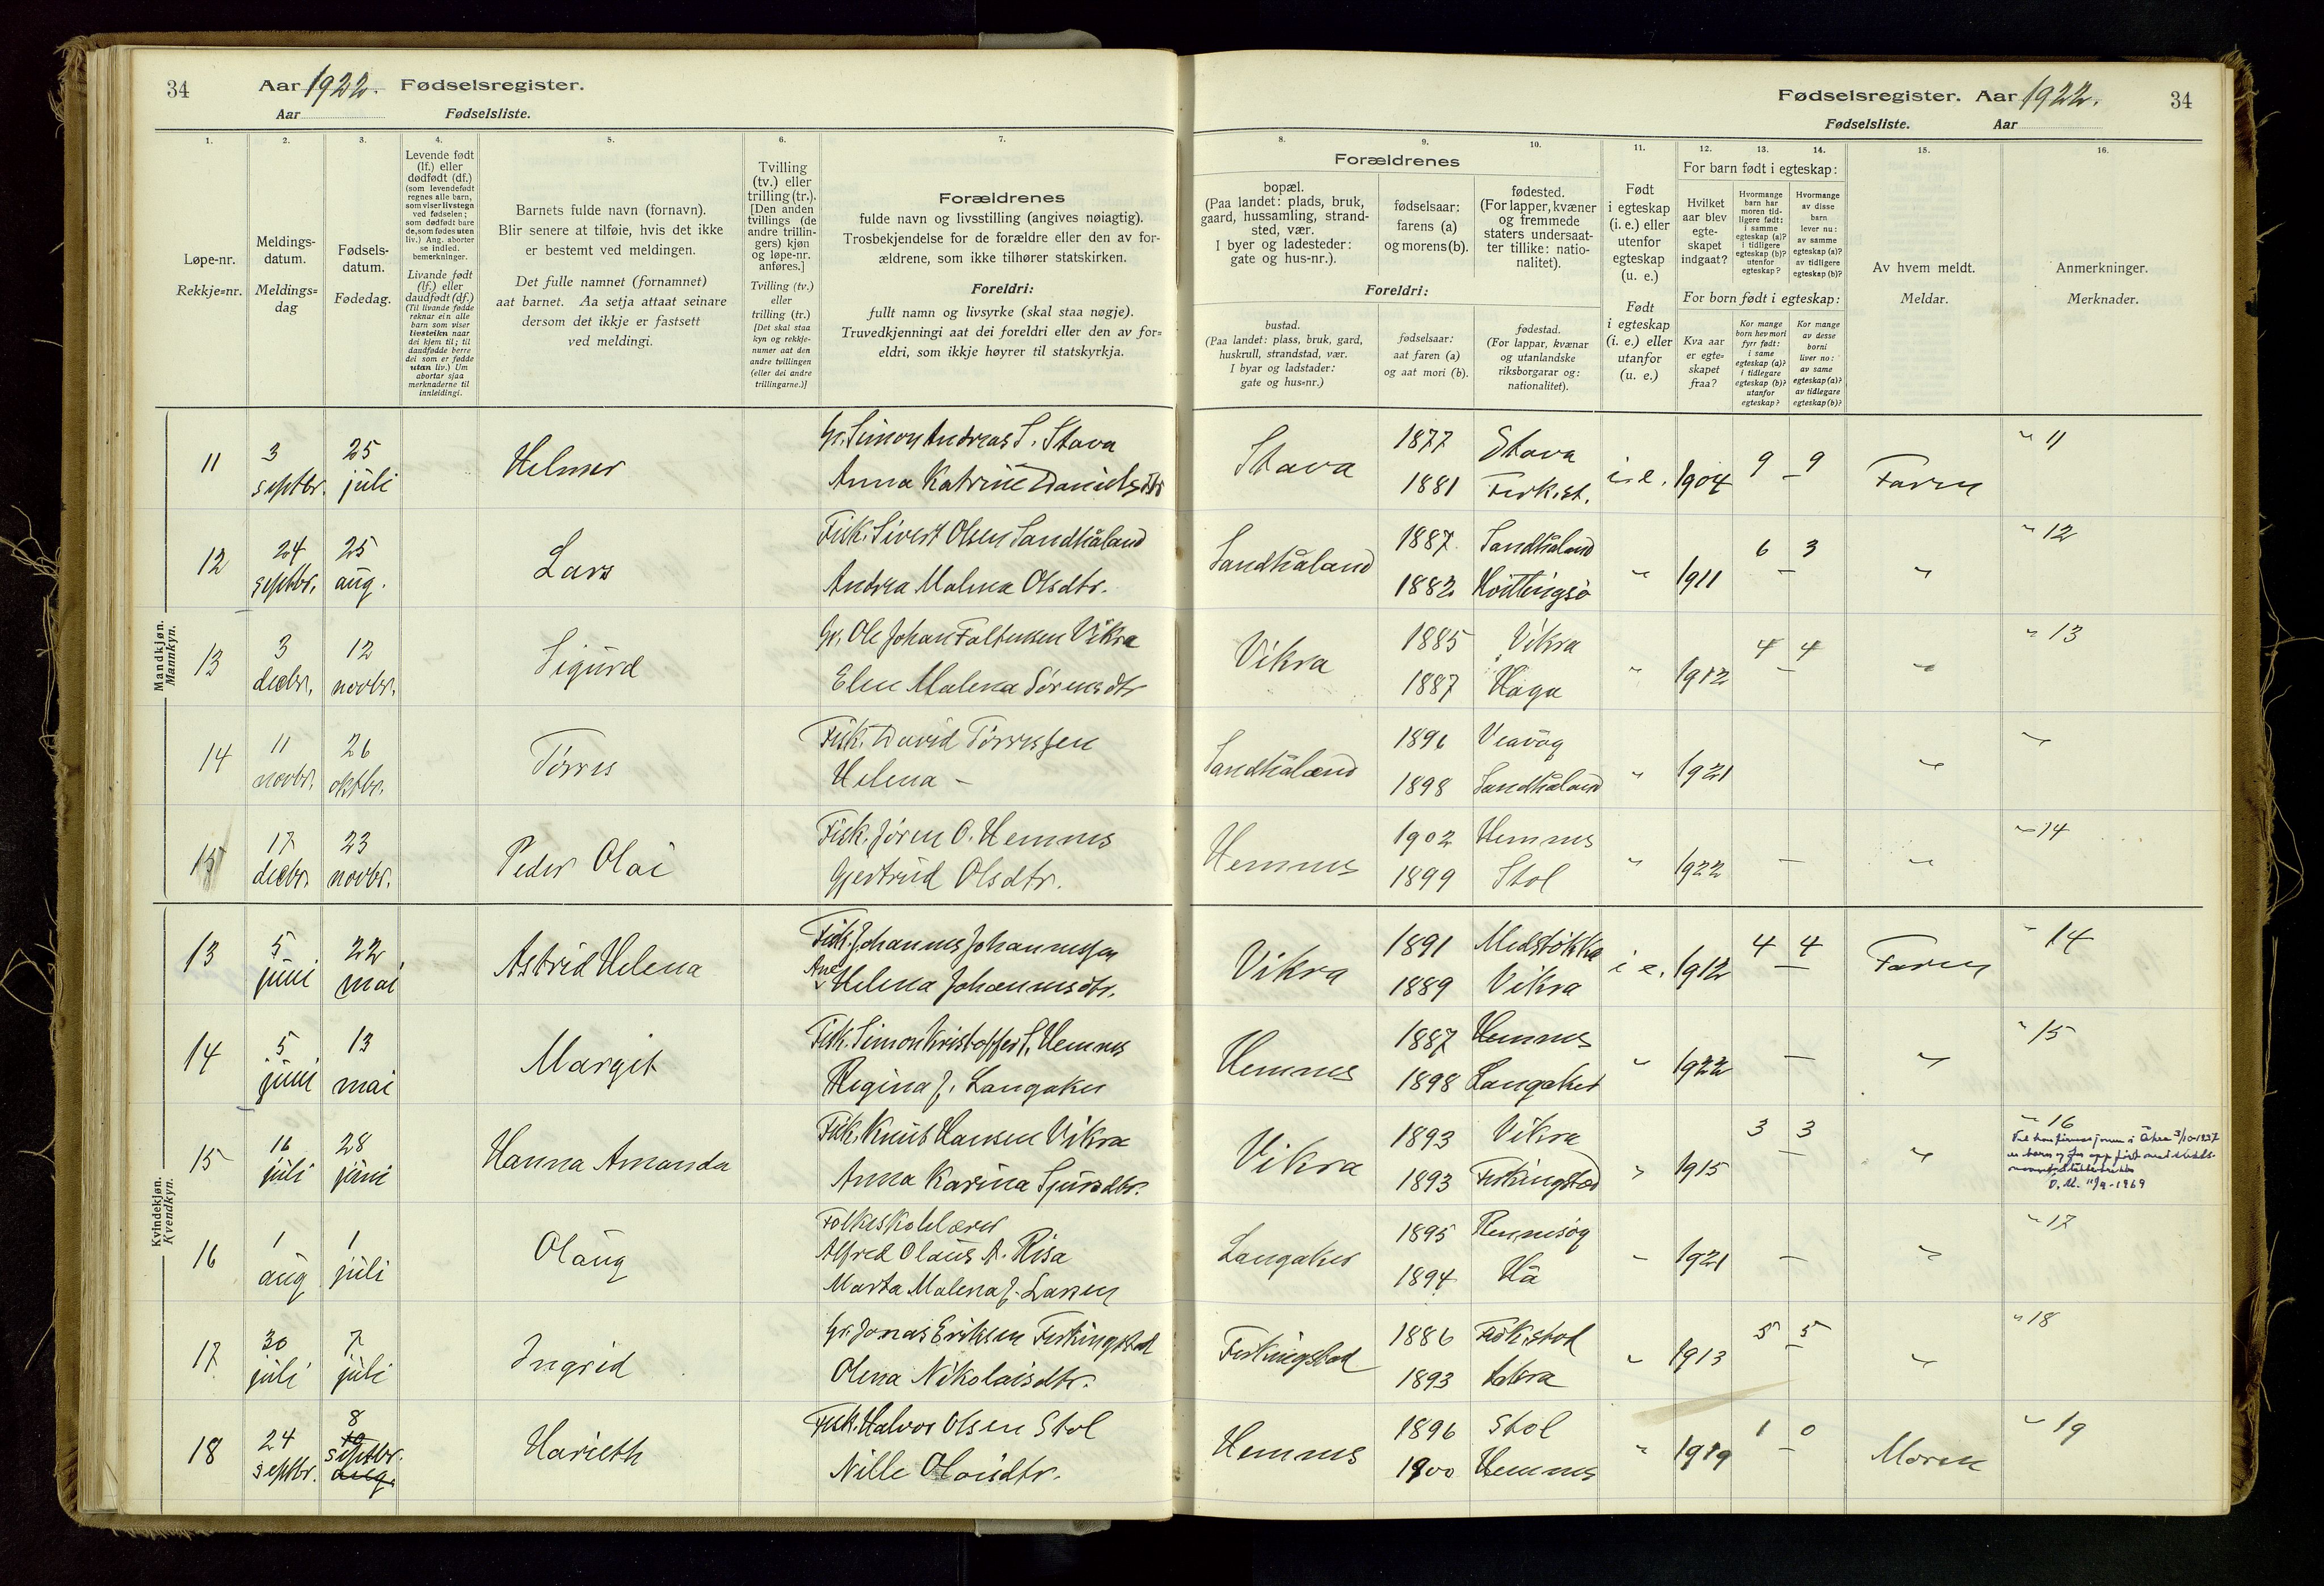 34 Aar 1922. Fødselsregister.
Aar Fødselsliste.
Fødselsregister. Aar 1922. 34
Fødselsliste. Aar
1. 2. 3. 4. 5. 6. 7.
Løpe-nr.
Rekkje=nr.
Meldings-
datum.
Meldings=
dag
Fødsels-
datum.
Fødedag.
Levende født
(lf.) eller
dødfødt (df.)
(som levendefødt
regnes alle barn,
som viser livstegn
ved fødselen;
som dødfødt bare
de, som fødes uten
liv.) Ang. aborter
se indled.
bemerkninger.
Livande født
(lf.) eller
daudfødt (df.)
(Til livande fødde
reknar ein alle
barn som viser
livsteikn naar
dei kjem til; til
daudfødde berre
dei som er fødde
utan liv.) Um
abortar sjaa
merknaderne til
innleidingi.
Barnets fulde navn (fornavn).
Blir senere at tilføie, hvis det ikke
er bestemt ved meldingen.
Det fulle namnet (fornamnet)
aat barnet. Aa setja attaat seinare
dersom det ikkje er fastsett
ved meldingi.
Tvilling
(tv.) eller
trilling (tr.).
[Den anden
tvillings (de
andre trillin-
gers) kjøn
og løpe-nr.
anføres.]
Tvilling (tv.)
eller
trilling (tr.)
[Det skal staa
kyn og rekkje-
numer aat den
andre tvillingen
(eller dei andre
trillingarne.)]
Forældrenes
fulde navn og livsstilling (angives nøiagtig).
Trosbekjendelse for de forældre eller den av for-
ældrene, som ikke tilhører statskirken.
Foreldri:
fullt namn og livsyrke (skal staa nøgje).
Truvedkjenningi aat dei foreldri eller den av for=
eldri, som ikkje høyrer til statskyrkja.
8. 9. 10. 11. 12. 13. 14. 15. 16.
Forældrenes
bopæl.
(Paa landet: plads, bruk,
gaard, hussamling, strand-
sted, vær.
I byer og ladesteder:
gate og hus-nr.).
fødselsaar:
farens (a)
og morens (b).
fødested.
(For lapper, kvæner
og fremmede
staters undersaat-
ter tillike: natio-
nalitet).
Foreldri:
bustad.
(Paa landet: plass, bruk, gard,
huskrull, strandstad, vær.
I byar og ladstader:
gate og hus=nr.)
fødselsaar:
aat faren (a)
og aat mori (b).
fødestad.
(For lappar, kvænar
og utanlandske
riksborgarar og:
nationalitet).
Født
i egteskap
(i. e.) eller
utenfor
egteskap
(u. e.)
Født
i egteskap
(i. e.) eller
utanfor
(u. e.)
For barn født i egteskap:
Hvilket
aar blev
egte-
skapet
indgaat?
Hvormange
barn har
moren tid-
ligere født:
i samme
egteskap (a)?
i tidligere
egteskap (b)?
utenfor
egteskap?
Hvormange
av disse
barn
lever nu:
av samme
egteskap (a)?
av tidligere
egteskap (b)?
For born født i egteskap:
Kva aar
er egte=
skapet
fraa?
Kor mange
born hev mori
fyrr født:
i same
egteskap (a)?
i tidlegare
egteskap (b)?
utanfor
egteskap?
Kor mange
av desse
borni
liver no:
av same
egteskap (a)?
av tidlegare
egteskap (b)?
Av hvem meldt.
Meldar.
Anmerkninger.
Merknader.
Mandkjøn.
Mannkyn.
11 3 septbr. 25 juli Helmer
Gr. Simon Andreas S. Stava
Anna Katrine Danielsdtr
Stava 1877 Stava
1881 Ferk.st. i. e. 1904 9 – 9 Faren " 11
12 24 septbr. 25 aug. Lars
Fisk. Sivert Olsen Sandhåland
Andrea Malena Olsdtr.
Sandhåland 1887. Sandhåland
1882 Høttingsö " 1911 6 – 3 " " 12
13 3 decbr. 12 novbr. Sigurd
Gr. Ole Johan Faltinsen Vikra
Elen Malena Sørensdtr
Vikra 1885 Vikra
1887 Håga " 1912 4 – 4 " " 13
14 11 novbr. 26 oktbr. Tørres
Fisk. David Tørressen
Helena –
Sandhåland 1896 Veavåg
1898 Sandhåland " 1921 " "
15 17 decbr. 23 novbr. Peder Olai
Fisk. Jøren O. Hemnes
Gjertrud Olsdtr.
Hemnes 1902 Hemnes
1899 Stol " 1922 – " " 14
Kvindekjøn.
Kvendkyn.
13 5 juni 22 mai Astrid Helena
Fisk. Johannes Johannessen
Ane
Helena Johannesdtr.
Vikra 1891 Medstökke
1889 Vikra i e. 1912 4 – 4 Faren " 14
14 5 juni 13 mai Margit
Fisk. Simon Kristoffer S. Hemnes
Regina J. Langaker
Hemnes 1887 Hemnes
1898 Langaker " 1922 – " " 15
15 16 juli 28 juni Hanna Amanda
Fisk. Knut Hansen Vikra
Anna Karina Sjursdtr.
Vikra 1893 Vikra
1893 Ferkingstad " 1915 3 – 3 " " 16
16 1 aug 1 juli Olaug
Folkeskolelærer
Alfred Olaus A. Risa
Marta Malena J. Larsen
Langaker 1895
1894 Hå – 1921 – " " 17
17 30 juli 7 juli Ingrid
Gr. Jonas Eriksen Ferkingstad
Olena Nikolaisdtr.
Ferkingstad 1886 Ferk.stad
1893 Åkra " 1913 5 – 5 " " 18
18 24 septbr. 8 septbr. aug. Harieth
Fisk. Halvor Olsen Stol
Nille Olaisdtr.
Hemnes 1896 Stol
1900 Hemnes " 1919 1 – 0 Moren " 19